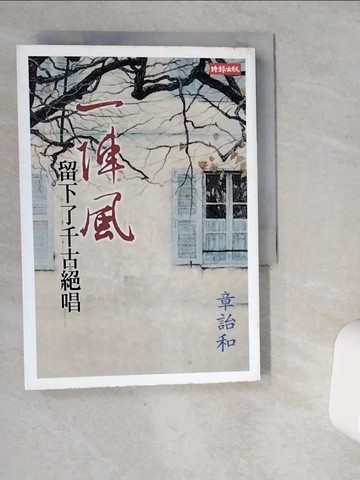 時報出版
一陣風
留下了千古絕唱
章詒和